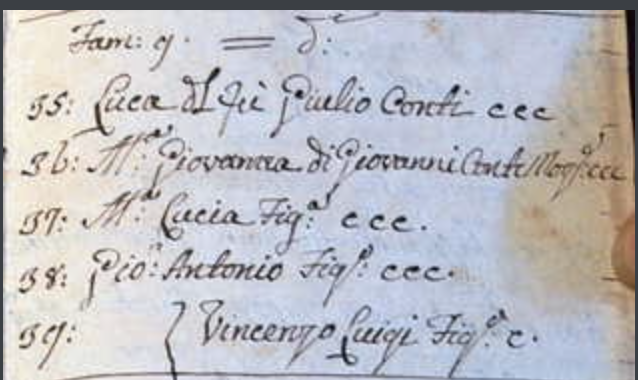 Fam: 9. = d:
35: Luca dl Fù Giulio Conti ccc
36: M.ª Giovanna di Giovanni Conti Mog.e ccc
37: M.ª Lucia Fig.ª ccc.
38: Gio: Antonio Fig.º ccc.
39: Vincenzo Luigi Fig.º c.